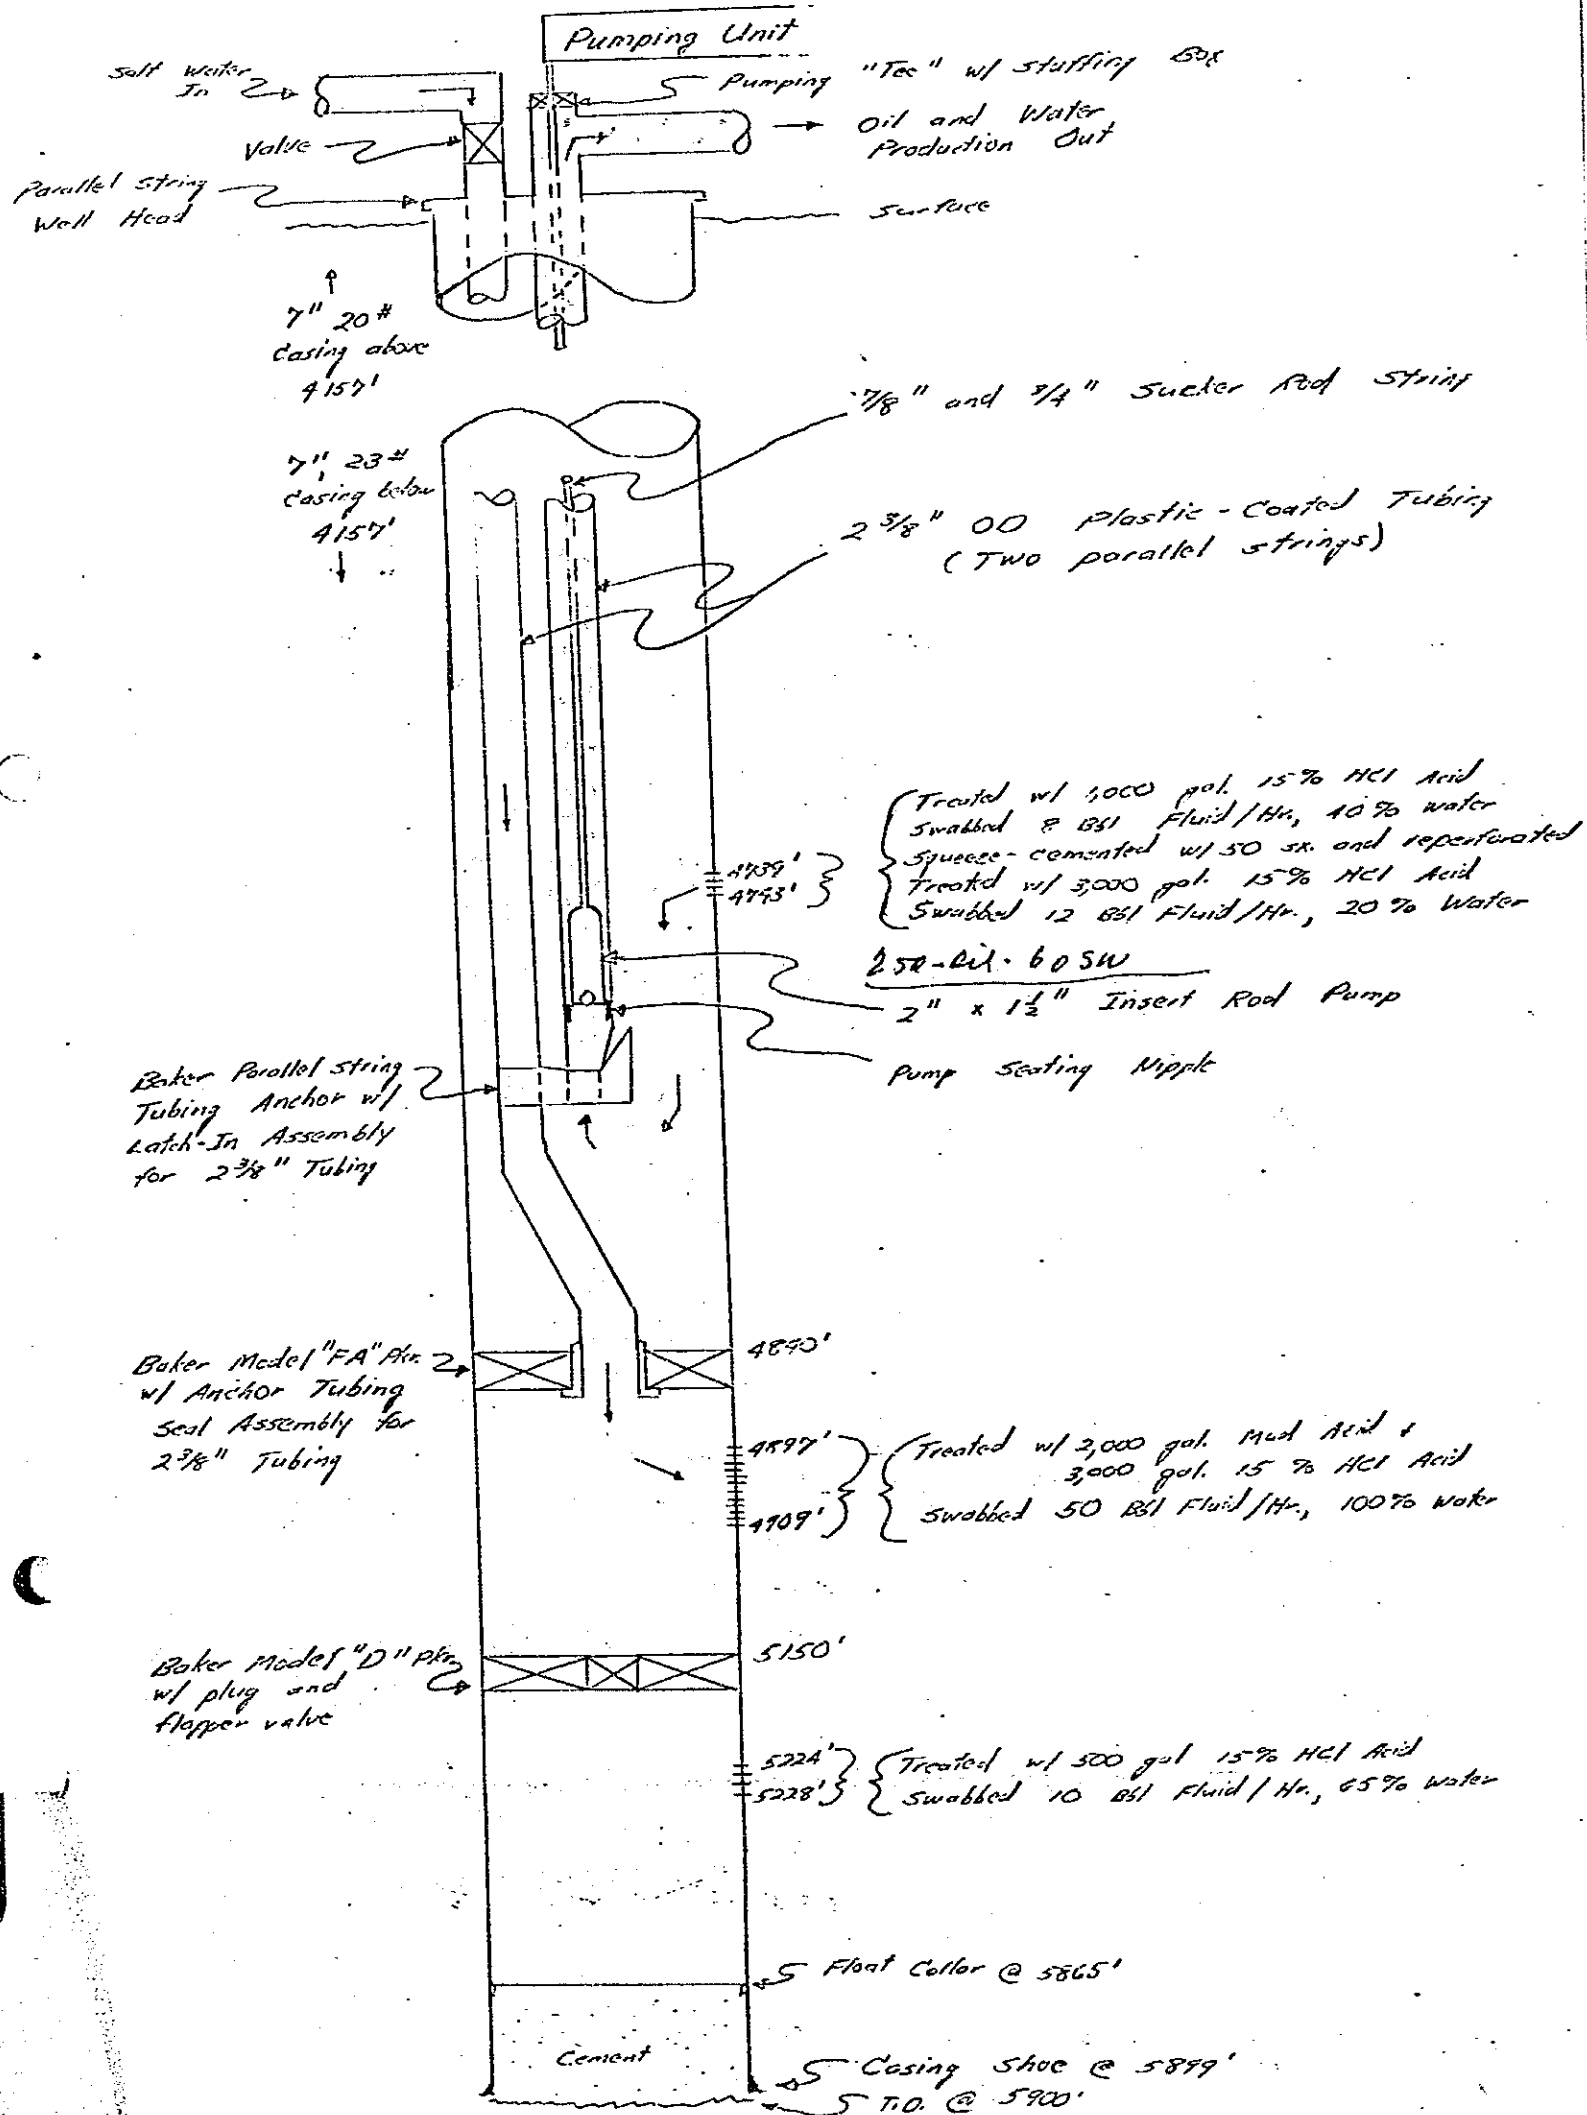 Pumping Unit
Salt Water
In
Pumping "Tee" w/ Stuffing Box
Oil and Water
Production Out
Valve
Parallel String
Well Head
Surface
7" 20#
Casing above
4157'
7/8" and 3/4" Sucker Rod String
7" 23#
Casing below
4157'
2 3/8" OD Plastic-Coated Tubing
(Two parallel strings)
4739'
4743'
Treated w/ 1,000 gal. 15% HCl Acid
Swabbed 8 Bbl Fluid/Hr., 40% water
Squeeze-cemented w/ 50 sx. and reperforated
Treated w/ 3,000 gal. 15% HCl Acid
Swabbed 12 Bbl Fluid/Hr., 20% Water
60 SW
2" x 1 1/2" Insert Rod Pump
Pump Seating Nipple
Baker Parallel String
Tubing Anchor w/
Latch-In Assembly
for 2 3/8" Tubing
Baker Model "FA" Pkr.
w/ Anchor Tubing
Seal Assembly for
2 3/8" Tubing
4890'
4897'
4909'
Treated w/ 2,000 gal. Mud Acid &
3,000 gal. 15% HCl Acid
Swabbed 50 Bbl Fluid/Hr., 100% Water
Baker Model "D" Pkr.
w/ plug and
flapper valve
5150'
5224'
5228'
Treated w/ 500 gal 15% HCl Acid
Swabbed 10 Bbl Fluid/Hr., 65% Water
Float Collar @ 5865'
Cement
Casing Shoe @ 5899'
T.D. @ 5900'